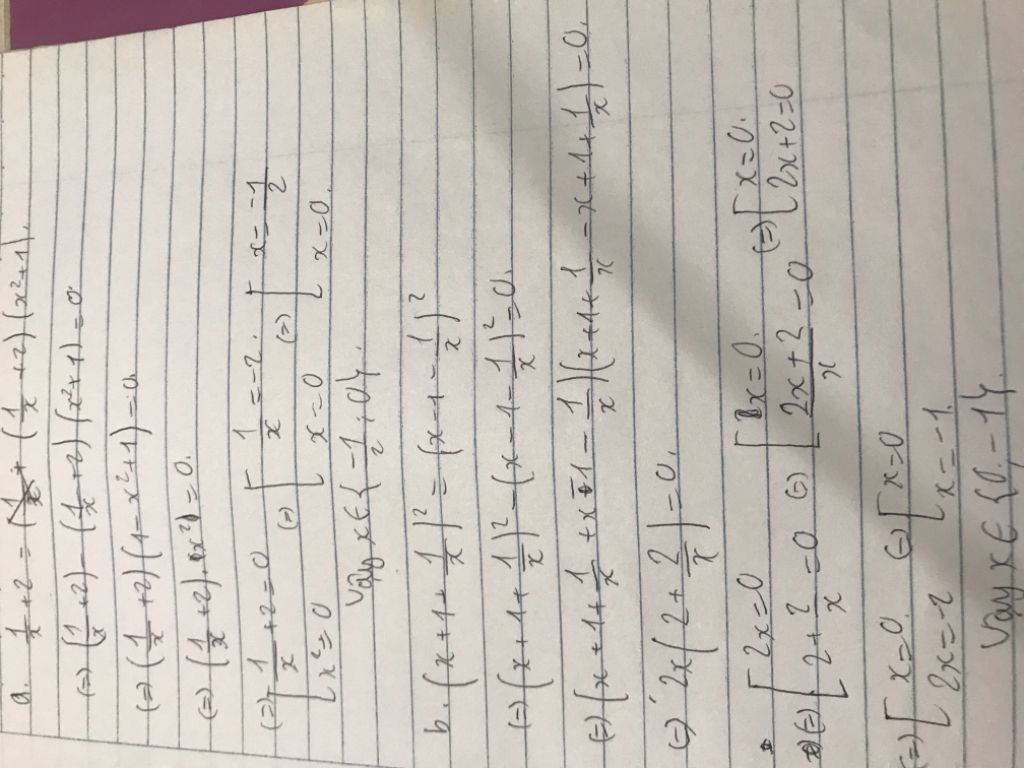 a. 1/x + 2 = (1/x + 2)(x²+1).
(=) (1/x + 2) - (1/x + 2)(x²+1) = 0
(=) (1/x + 2)(1 - x²+1) = 0.
(=) (1/x + 2).(x²) = 0.
(=) [ 1/x + 2 = 0 (=) [ 1/x = -2. (=) [ x = -1/2
[ x² = 0 [ x = 0 [ x = 0.
Vậy x ∈ {-1/2, 0}.
b. (x + 1 + 1/x)² = (x - 1 - 1/x)²
(=) (x + 1 + 1/x)² - (x - 1 - 1/x)² = 0.
(=) (x + 1 + 1/x + x - 1 - 1/x)(x + 1 + 1/x - x + 1 + 1/x) = 0.
(=) 2x(2 + 2/x) = 0.
[ 2x = 0 [ x = 0. [ x = 0.
(=) [ 2 + 2/x = 0 (=) [ 2x+2/x = 0 (=) [ 2x + 2 = 0
(=) [ x = 0. (=) [ x = 0
[ 2x = -2 [ x = -1.
Vậy x ∈ {0, -1}.